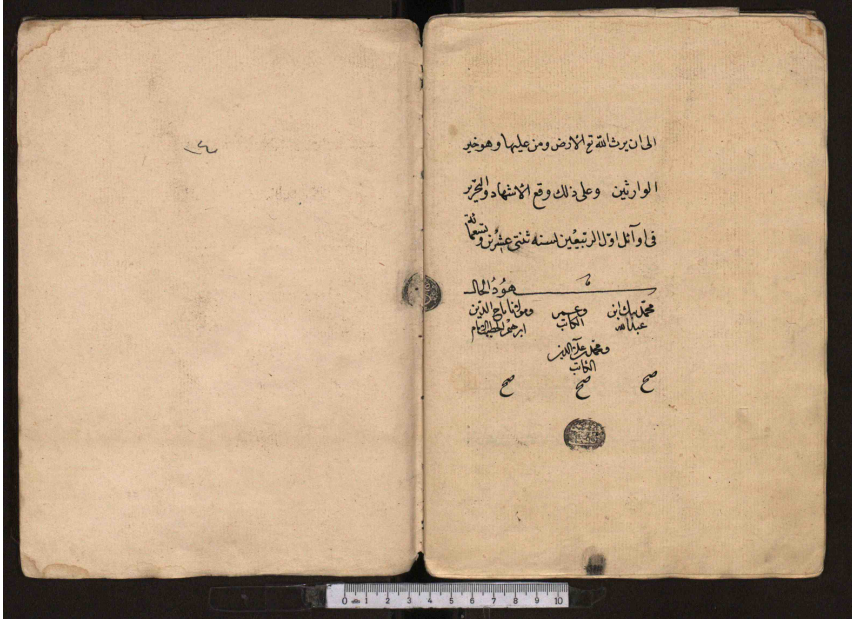 الى ان يرث الله تع الارض ومن عليها وهو خير
الوارثين وعلى ذلك وقع الاشهاد والتحرير
فى اوآئل اول الربيعين لسنه ثنتى عشرين وتسعمائة
شهود الحال
محمد بك ابن عبدالله
وعمر الكاتب
ومولانا تاج الدين ابرهيم الخطيب
ومحمد بن علآء الدين الكاتب
صح
صح
صح
0 1 2 3 4 5 6 7 8 9 10